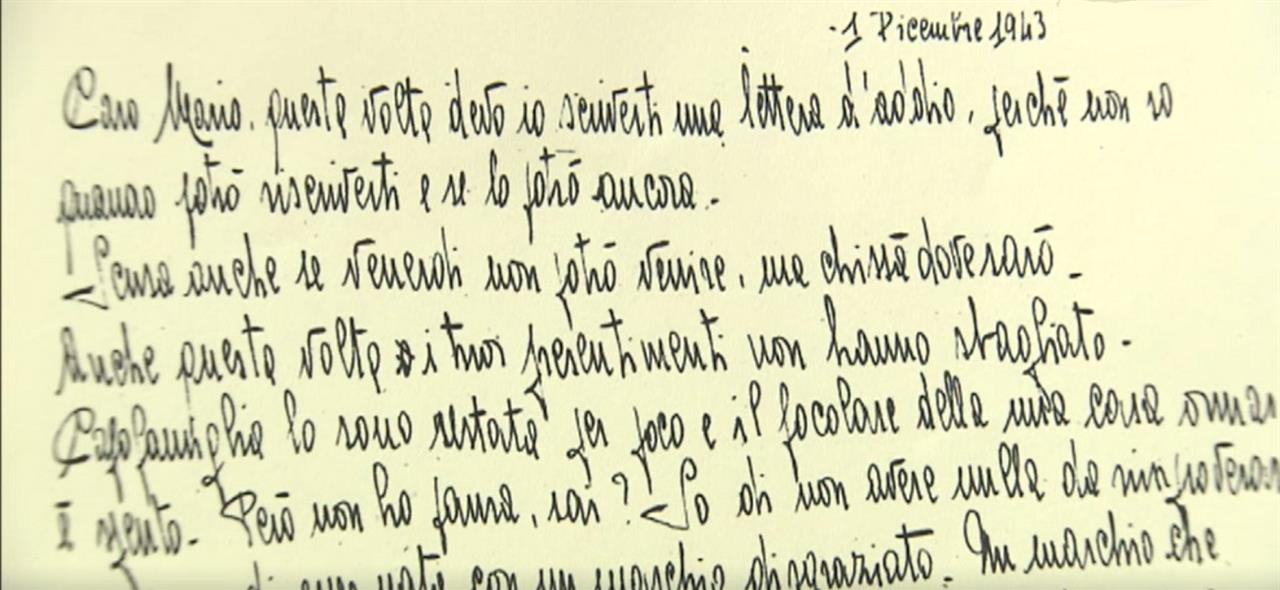 -1 Dicembre 1943
Caro Mario, questa volta devo io scriverti una lettera d'addio, perchè non so
quando potrò riscriverti e se lo potrò ancora.
Scusa anche se venerdi non potrò venire, ma chissà dove sarò -
Anche questa volta i tuoi presentimenti non hanno sbagliato -
Capofamiglia lo sono restata per poco e il focolare della mia casa ormai
è spento - Però non ho paura, sai? So di non avere nulla da rimproverar
con un marchio disgraziato. Un marchio che